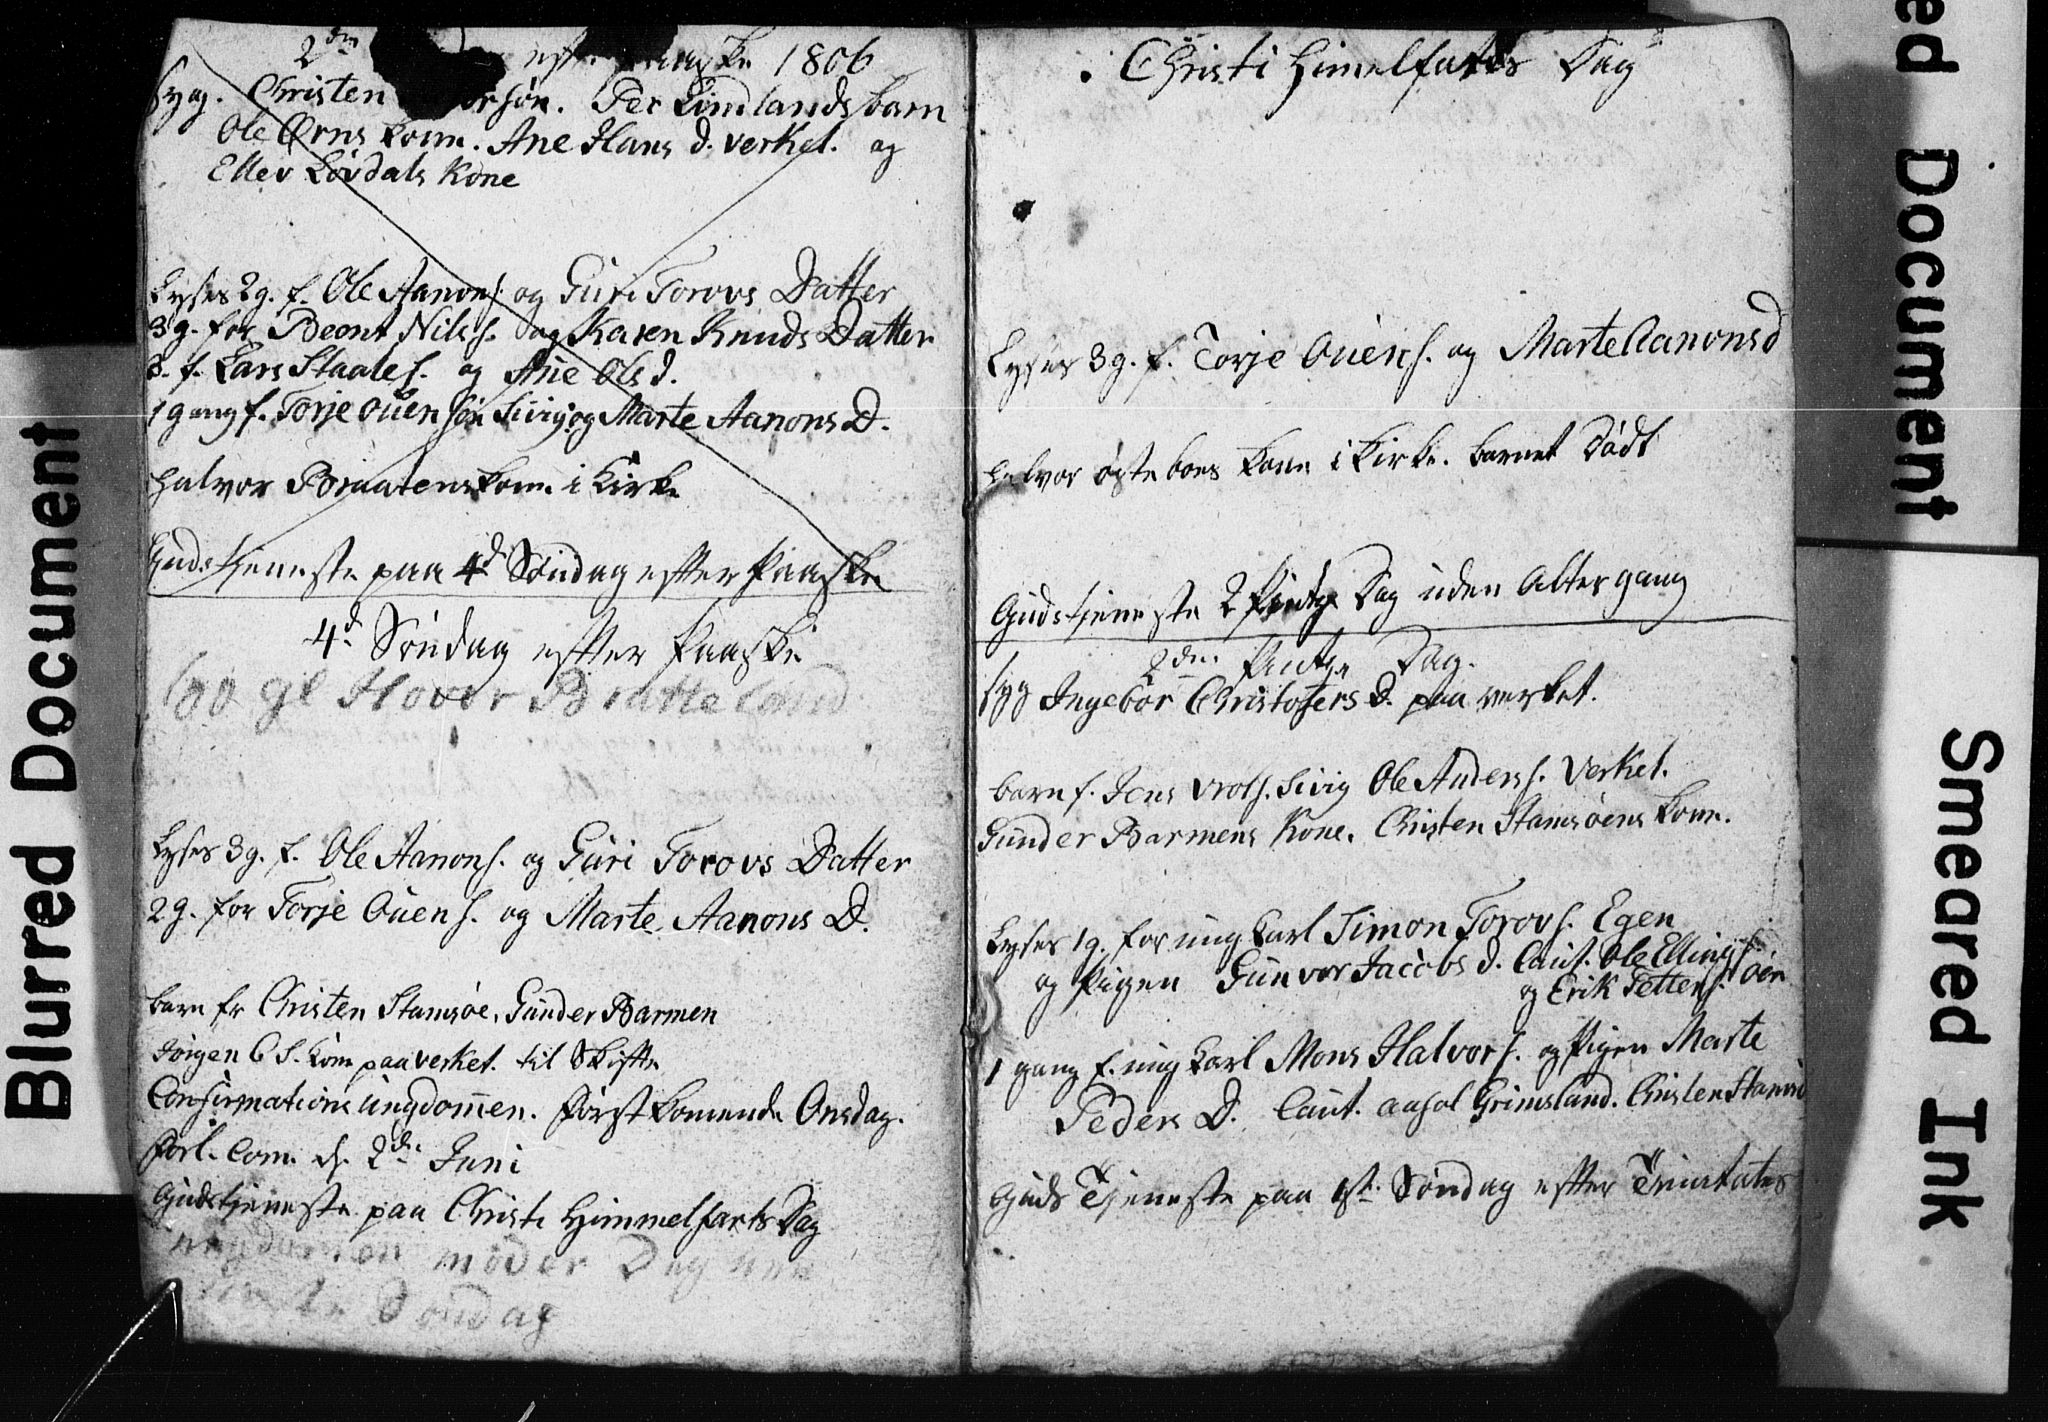 2den efter Paaske 1806
Syg. Christen Per Lindlands barn
Ole Ørns kone. Ane Hans d. verket. og
Ellev Løvdals Kone
Lyses 2g. f. Ole Aanons. og Guri Torovs Datter
3g. for Beent Nilss. og Karen Knuds Datter
3. f. Lars Staales. og Ane Ols d.
1 gang f. Torje Ouensøn Sivig og Marte Aanons D.
Halvor Braatens kone i Kirke
Gudstjeneste paa 4d Søndag efter Paaske
4d Søndag efter Paaske
gl Hovor Bratteland
Lyses 3g. f. Ole Aanons. og Guri Torovs Datter
2g. for Torje Ouens. og Marte Aanons D.
barn fr Christen Stamsøe, Gunder Barmen
Jørgen C S. kone paa verket. til Skifte
Confirmations ungdommen. først komende Onsdag.
forl. Com. d. 2de Juni
Gudstjeneste paa Christi Himmelfarts Dag
ungdommen møder Dag
Søndag
Christi Himelfarts Dag
Lyses 3g. f. Torje Ouens. og Marte Aanons d
Halvor øgte boes kone i Kirke. barnet Dødt
Gudstjeneste 2 Pintse Dag uden Altergang
2den Pintse Dag.
Syg Ingebor Christofers D. paa verket.
barn f. Jens Wrols. Sivig Ole Anderss. Verket.
Gunder Barmens Kone. Christen Stamsøens kone.
Lyses 1g. for ung karl Simon Torovs. Egen
og Pigen Gunvor Jacobs d. Caut. Ole Ellings.
og Erik Tettens. Øen
1 gang f. ung karl Mons Halvors. og Pigen Marte
Peders D. Caut. Grimsland. Christen Stamsø
Guds Tjeneste paa 1ste Søndag efter Trinitates
Blurred Document
ed Document
Smeared Ink